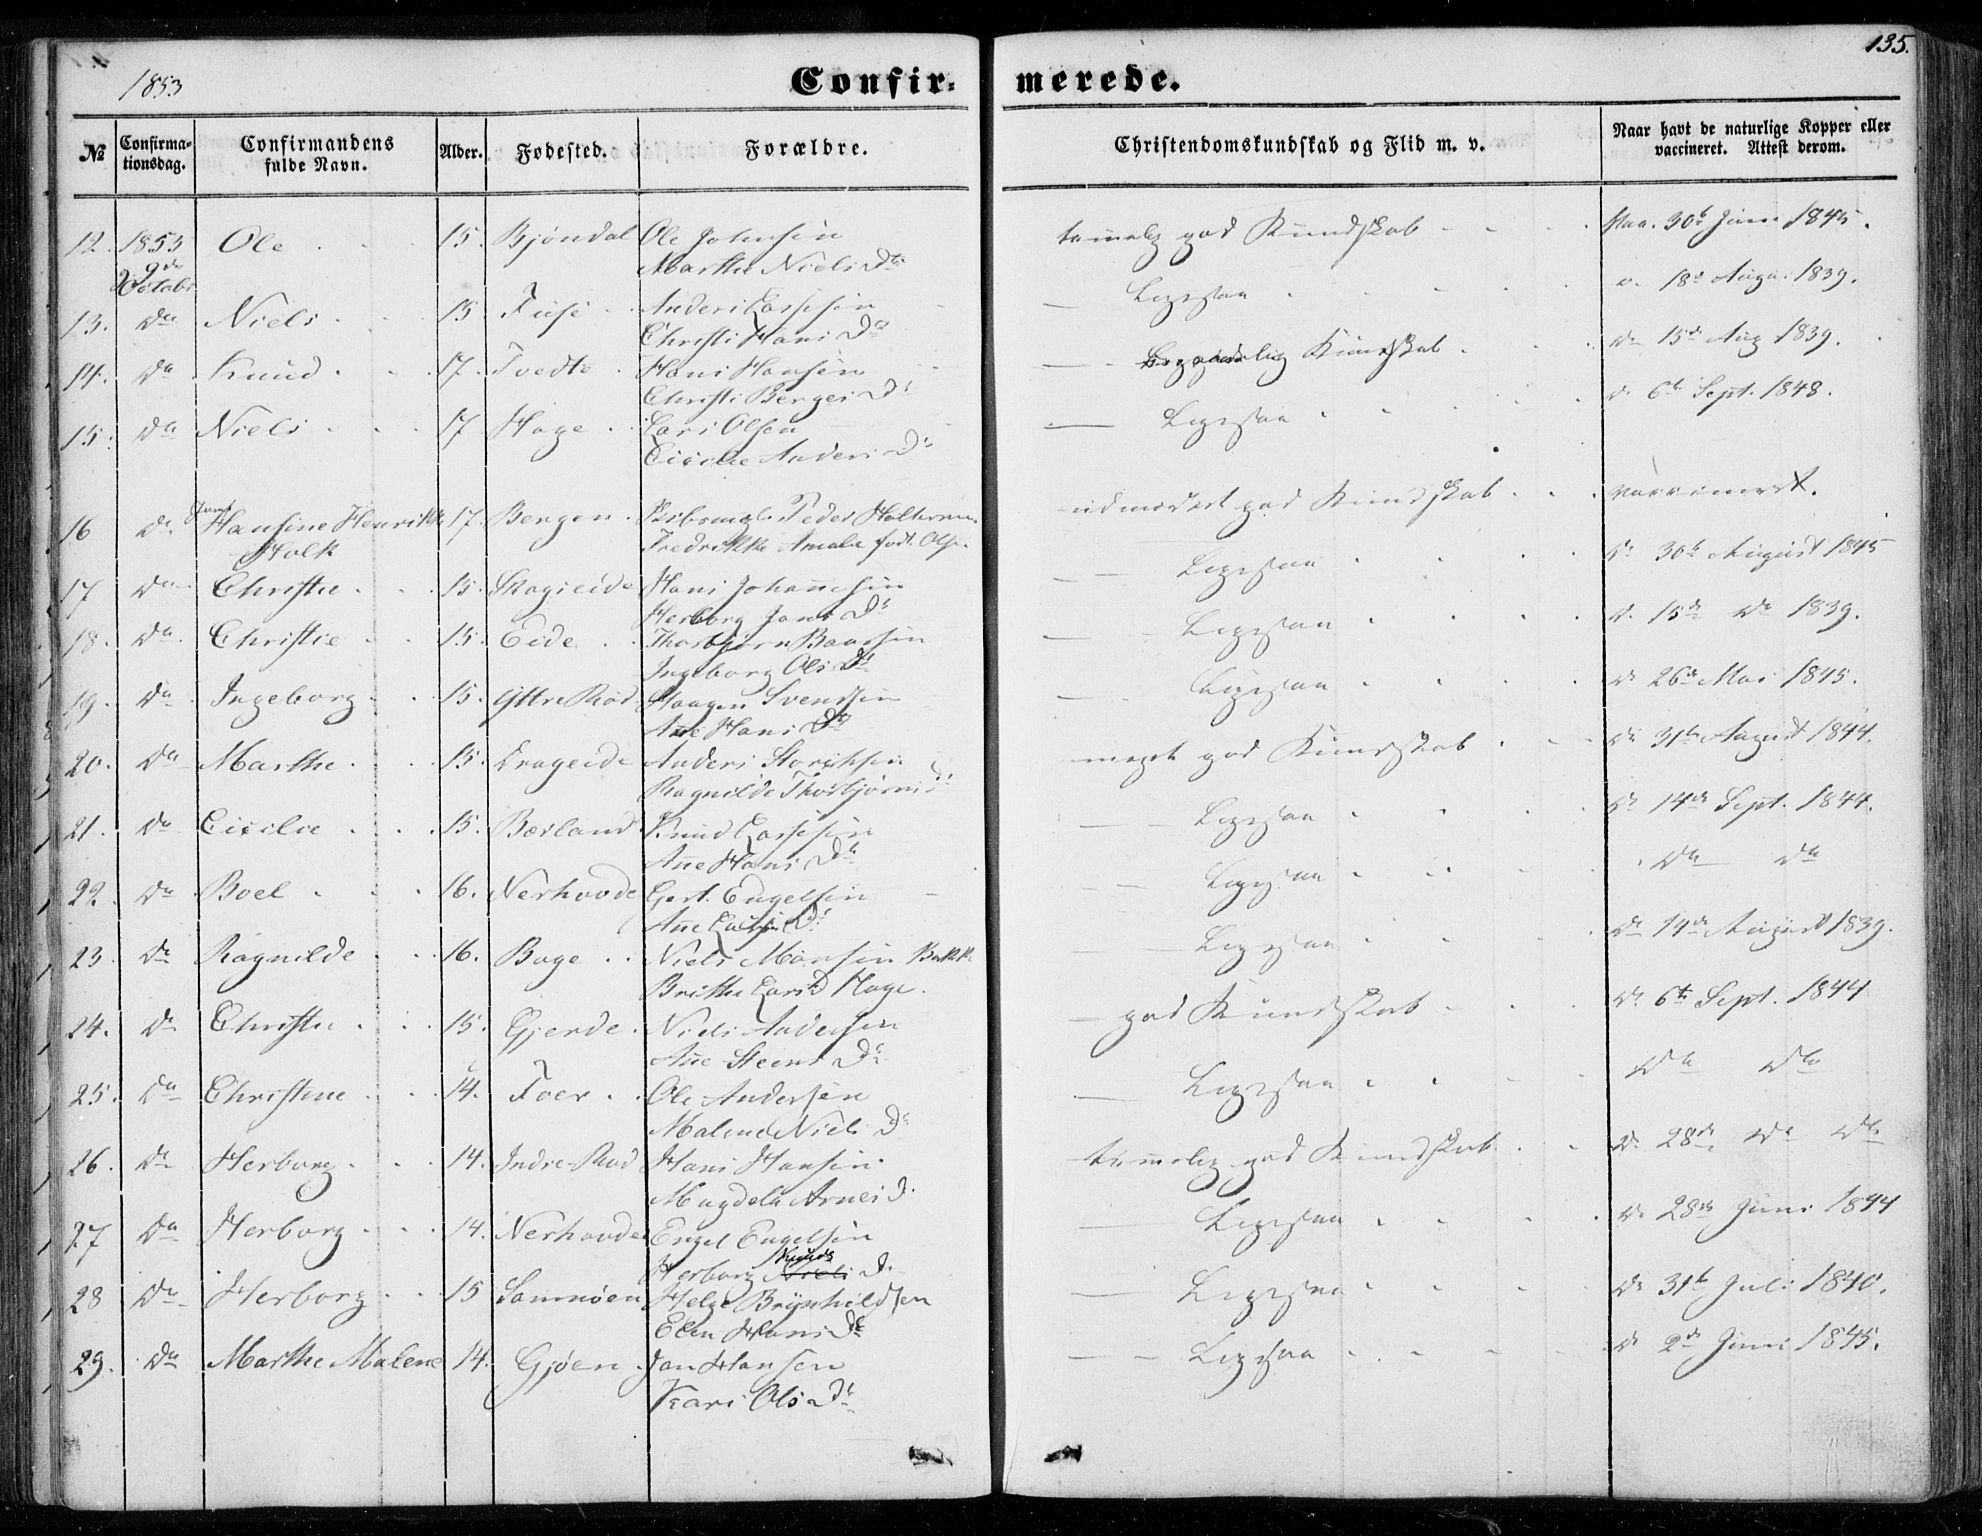 1853
Confir- merede.
135.
№ Confirma-tionsdag. Confirmandens fulde Navn. Alder. Fødested. Forældre. Christendomskundskab og Flid m. v. Naar havt de naturlige Kopper eller vaccineret. Attest derom.
12. 1853 Ole 15. Bjøndal Ole Johnsen temmelig god Kundskab 30te Juni 1845.
9de Octobr Marthe Niels Dr
13. do Niels 15 Fuse Anders Larssen Ligesaa 18de Augu. 1839.
Christi Hans Dr
14. do Knud 17. Tvedte Hans Hansen Kundskab do 15de Aug 1839.
Christi Berges Dr
15. do Niels 17 Hage Lars Olsen Ligesaa do 6te Sept. 1848.
Cicilie Anders Dr
16 do Hansine Henrikke 17. Bergen Peder udmærket god Kundskab vaccineret.
Holk Fredrikke Amalie født Olsen
17 do Christie 15. Skogseide Hans Johannesen Ligesaa do 30te August 1845
Herborg Jans Dr
18. do Christie 15. Eide Thorbjørn Baarsen Ligesaa do 15de do 1839.
Ingeborg Ols Dr
19. do Ingeborg 15. Yttre Rød Haagen Svendsen Ligesaa do 26de Mai 1845.
Ane Hans Dr
20. do Marthe 15. Drageide Anders Storksen meget god Kundskab do 31te August 1844.
Ragnilde Thorbjørns Dr
21. do Cicilie 15. Bærland Knud Larssen Ligesaa do 14de Sept. 1844.
Ane Hans Dr
22. do Boel 16. Nerhovde Gert Engelsen Ligesaa do do
Ane Dr
23. do Ragnilde 16. Bage Niels Monsen Bakke Ligesaa do 14de August 1839.
Brithe Lars D Hage.
24. do Christie 15. Gjerde Niels Andersen god Kundskab do 6te Sept. 1844
Ane Steens Dr
25. do Christine 14. Foer Ole Andersen Ligesaa do do
Malene Niels Dr
26. do Herborg 14. Indre Rød Hans Hansen temmelig god Kundskab do 28de do do
Magdela Arnes D.
27 do Herborg 14. Nerhovde Engel Engelsen Ligesaa do 28de Juni 1844
Herborg Niels Knuds D.
28 do Herborg 15 Samnøen Helge Brynhildsen Ligesaa do 31te Juli 1840.
Elen Hans Dr
29. do Marthe Malene 14. Gjøen Jan Hansen Ligesaa do 2de Juni 1845.
Kari Ols Dr